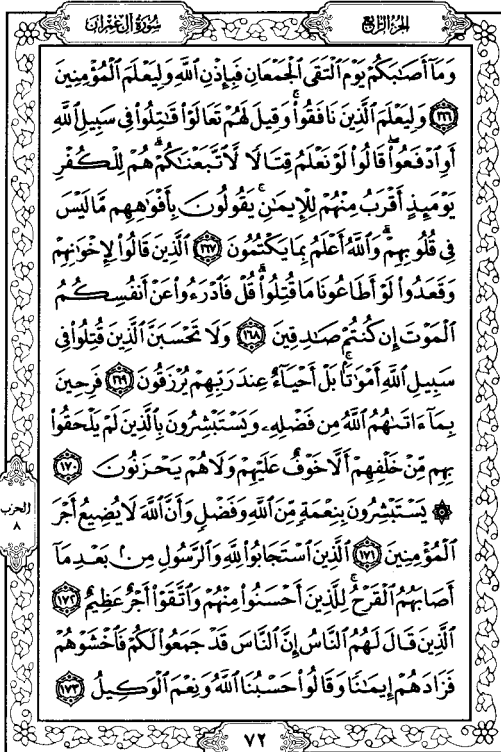 سُورَةُ آلِ عِمْرَانَ
الجُزْءُ الرَّابِعُ
وَمَآ أَصَٰبَكُمْ يَوْمَ ٱلْتَقَى ٱلْجَمْعَانِ فَبِإِذْنِ ٱللَّهِ وَلِيَعْلَمَ ٱلْمُؤْمِنِينَ
١٦٦ وَلِيَعْلَمَ ٱلَّذِينَ نَافَقُوا۟ۚ وَقِيلَ لَهُمْ تَعَالَوْا۟ قَٰتِلُوا۟ فِى سَبِيلِ ٱللَّهِ
أَوِ ٱدْفَعُوا۟ۖ قَالُوا۟ لَوْ نَعْلَمُ قِتَالًا لَّٱتَّبَعْنَٰكُمْۗ هُمْ لِلْكُفْرِ
يَوْمَئِذٍ أَقْرَبُ مِنْهُمْ لِلْإِيمَٰنِۚ يَقُولُونَ بِأَفْوَٰهِهِم مَّا لَيْسَ
فِى قُلُوبِهِمْۗ وَٱللَّهُ أَعْلَمُ بِمَا يَكْتُمُونَ ١٦٧ ٱلَّذِينَ قَالُوا۟ لِإِخْوَٰنِهِمْ
وَقَعَدُوا۟ لَوْ أَطَاعُونَا مَا قُتِلُوا۟ۗ قُلْ فَٱدْرَءُوا۟ عَنْ أَنفُسِكُمُ
ٱلْمَوْتَ إِن كُنتُمْ صَٰدِقِينَ ١٦٨ وَلَا تَحْسَبَنَّ ٱلَّذِينَ قُتِلُوا۟ فِى
سَبِيلِ ٱللَّهِ أَمْوَٰتًۢاۚ بَلْ أَحْيَآءٌ عِندَ رَبِّهِمْ يُرْزَقُونَ ١٦٩ فَرِحِينَ
بِمَآ ءَاتَىٰهُمُ ٱللَّهُ مِن فَضْلِهِۦ وَيَسْتَبْشِرُونَ بِٱلَّذِينَ لَمْ يَلْحَقُوا۟
بِهِم مِّنْ خَلْفِهِمْ أَلَّا خَوْفٌ عَلَيْهِمْ وَلَا هُمْ يَحْزَنُونَ ١٧٠
۞ يَسْتَبْشِرُونَ بِنِعْمَةٍ مِّنَ ٱللَّهِ وَفَضْلٍ وَأَنَّ ٱللَّهَ لَا يُضِيعُ أَجْرَ
ٱلْمُؤْمِنِينَ ١٧١ ٱلَّذِينَ ٱسْتَجَابُوا۟ لِلَّهِ وَٱلرَّسُولِ مِنۢ بَعْدِ مَآ
أَصَابَهُمُ ٱلْقَرْحُۚ لِلَّذِينَ أَحْسَنُوا۟ مِنْهُمْ وَٱتَّقَوْا۟ أَجْرٌ عَظِيمٌ ١٧٢
ٱلَّذِينَ قَالَ لَهُمُ ٱلنَّاسُ إِنَّ ٱلنَّاسَ قَدْ جَمَعُوا۟ لَكُمْ فَٱخْشَوْهُمْ
فَزَادَهُمْ إِيمَٰنًا وَقَالُوا۟ حَسْبُنَا ٱللَّهُ وَنِعْمَ ٱلْوَكِيلُ ١٧٣
الحزب
٨
٧٢